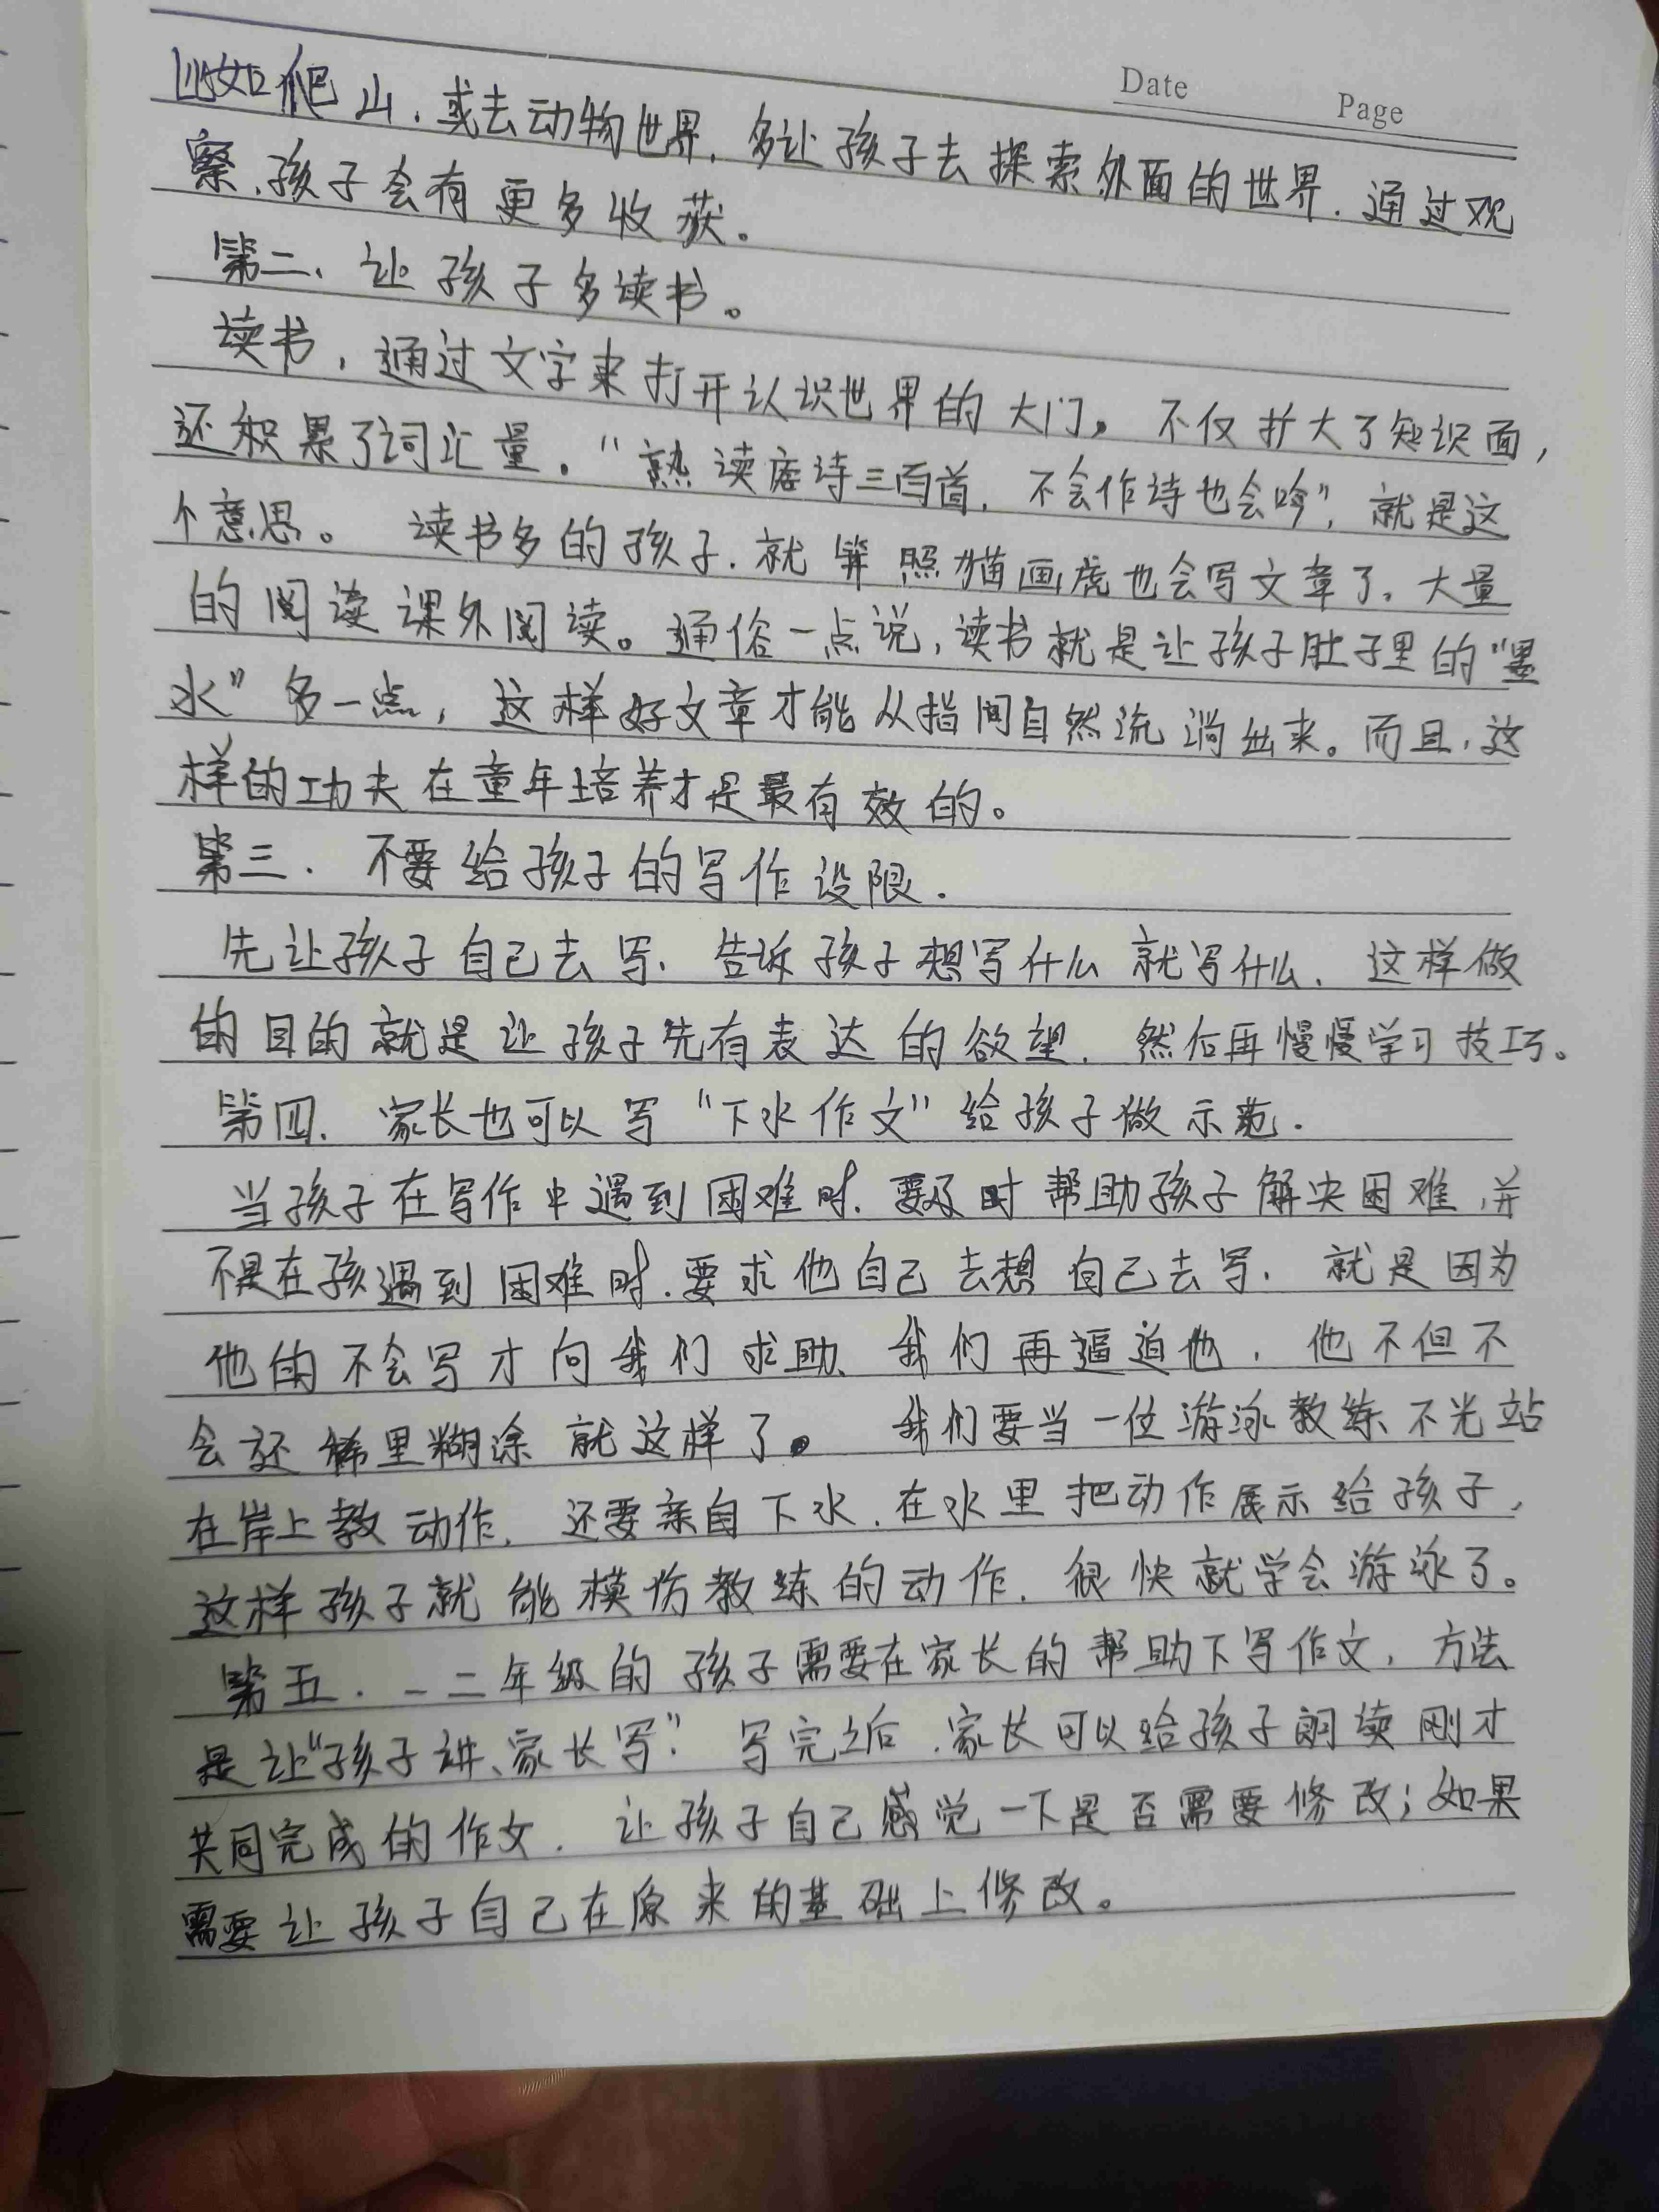 Date
Page
比如爬山，或去动物世界，多让孩子去探索外面的世界，通过观
察，孩子会有更多收获。
第二、让孩子多读书。
读书，通过文字来打开认识世界的大门。不仅扩大了知识面，
还积累了词汇量。“熟读唐诗三百首，不会作诗也会吟”，就是这
个意思。读书多的孩子，就算照猫画虎也会写文章了。大量
的阅读课外阅读。通俗一点说，读书就是让孩子肚子里的“墨
水”多一点，这样好文章才能从指间自然流淌出来。而且，这
样的功夫在童年培养才是最有效的。
第三．不要给孩子的写作设限．
先让孩子自己去写，告诉孩子想写什么就写什么，这样做
的目的就是让孩子先有表达的欲望，然后再慢慢学习技巧。
第四．家长也可以写“下水作文”给孩子做示范．
当孩子在写作中遇到困难时，要及时帮助孩子解决困难，并
不是在孩遇到困难时，要求他自己去想自己去写，就是因为
他的不会写才向我们求助、我们再逼迫他，他不但不
会还稀里糊涂就这样了。我们要当一位游泳教练不光站
在岸上教动作，还要亲自下水，在水里把动作展示给孩子，
这样孩子就能模仿教练的动作，很快就学会游泳了。
第五．一二年级的孩子需要在家长的帮助下写作文，方法
是让“孩子讲、家长写”．写完之后，家长可以给孩子朗读刚才
共同完成的作文，让孩子自己感觉一下是否需要修改；如果
需要让孩子自己在原来的基础上修改。